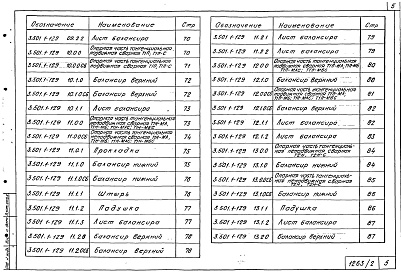 5
Обозначение Наименование Стр
3.501.1-129 09.2.2 Лист балансира 70
3.501.1-129 10.00 Опорная часть тангенциальная подвижная сборная
70
3.501.1-129 10.00СБ Опорная часть тангенциальная подвижная сборная
71
3.501.1-129 10.1.0 Балансир верхний 72
3.501.1-129 10.1.0СБ Балансир верхний 72
3.501.1-129 10.1.1 Лист балансира 73
3.501.1-129 11.00 Опорная часть тангенциальная подвижная сборная
73
3.501.1-129 11.00СБ Опорная часть тангенциальная подвижная сборная
74
3.501.1-129 11.0.1 Прокладка 75
3.501.1-129 11.1.0 Балансир нижний 75
3.501.1-129 11.1.0СБ Балансир нижний 76
3.501.1-129 11.1.1 Штырь 76
3.501.1-129 11.1.2 Подушка 77
3.501.1-129 11.1.3 Лист балансира 77
3.501.1-129 11.2.0 Балансир верхний 78
3.501.1-129 11.2.0СБ Балансир верхний 78
Обозначение Наименование Стр
3.501.1-129 11.2.1 Лист балансира 79
3.501.1-129 11.2.2 Лист балансира 79
3.501.1-129 12.00 Опорная часть тангенциальная подвижная сборная
80
3.501.1-129 12.1.0 Балансир верхний 80
3.501.1-129 12.00СБ Опорная часть тангенциальная подвижная сборная
81
3.501.1-129 12.1.0СБ Балансир верхний 82
3.501.1-129 12.1.1 Лист балансира 82
3.501.1-129 12.1.2 Лист балансира 83
3.501.1-129 13.0.0 Опорная часть тангенциальная неподвижная сборная
84
3.501.1-129 13.1.0 Балансир нижний 84
3.501.1-129 13.00СБ Опорная часть тангенциальная неподвижная сборная
85
3.501.1-129 13.1.0СБ Балансир нижний 86
3.501.1-129 13.1.1 Подушка 86
3.501.1-129 13.1.2 Лист балансира 87
3.501.1-129 13.2.0 Балансир верхний 87
1263/2 5